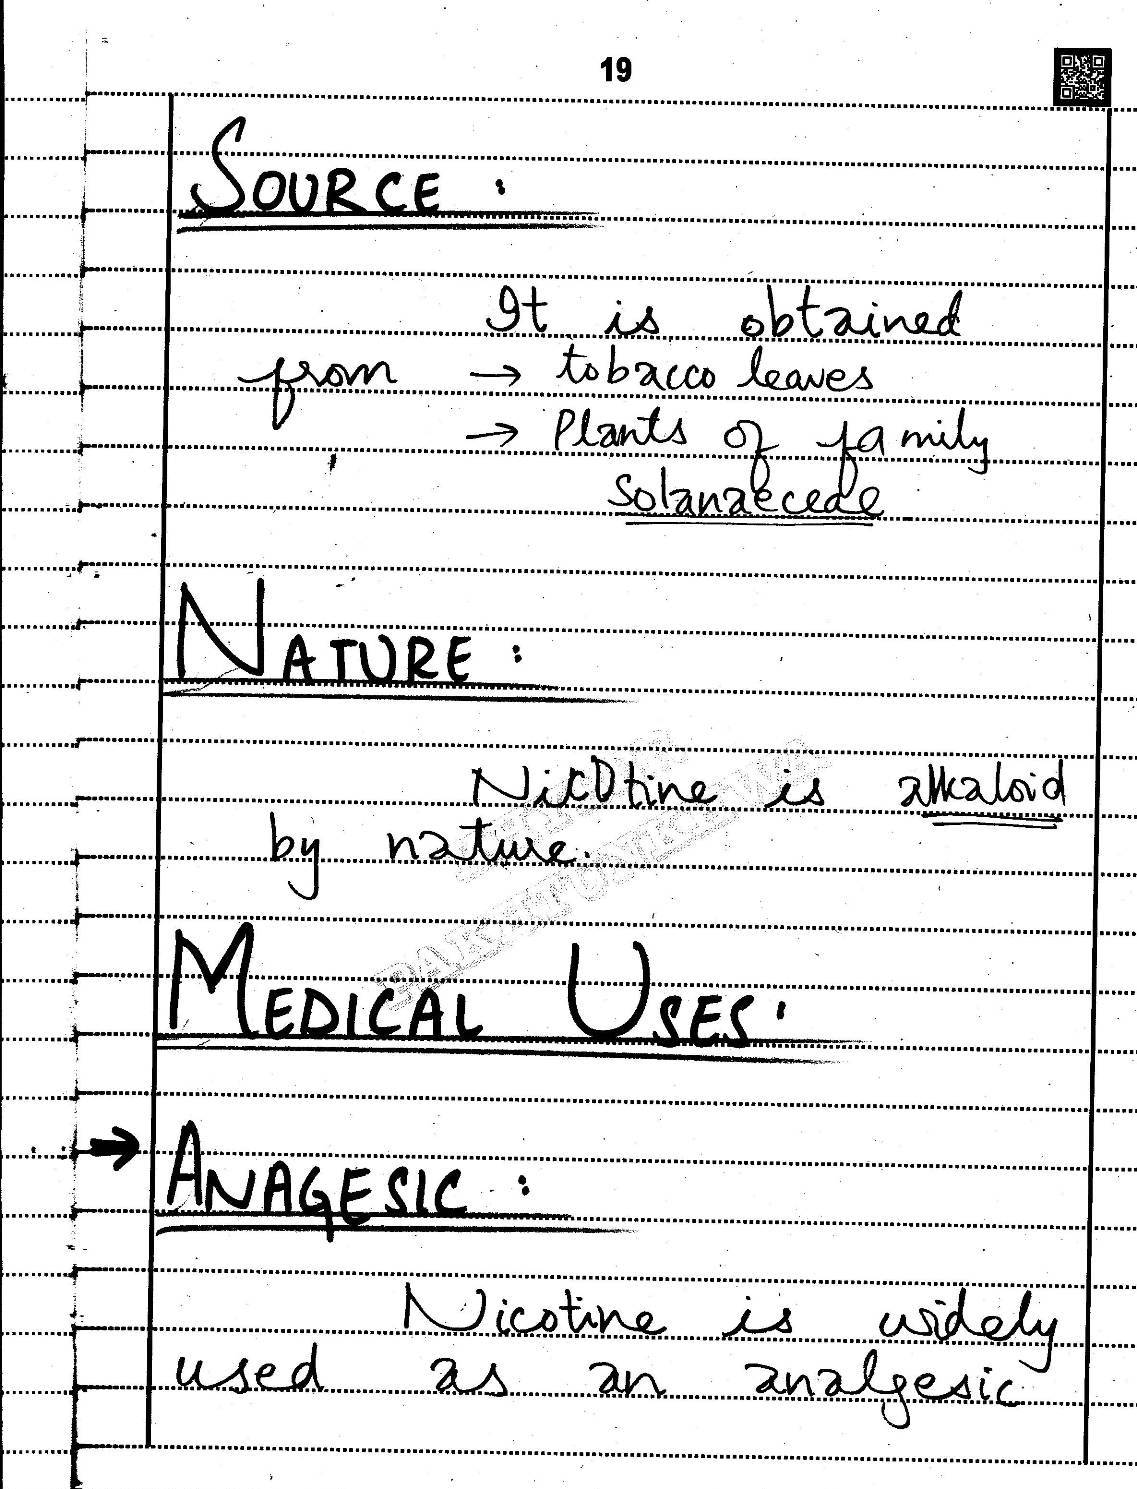 19
SOURCE :
It is obtained
from → tobacco leaves
→ Plants of family
Solanaeceae
NATURE :
Nicotine is alkaloid
by nature.
MEDICAL USES:
→ ANAGESIC :
Nicotine is widely
used as an analgesic